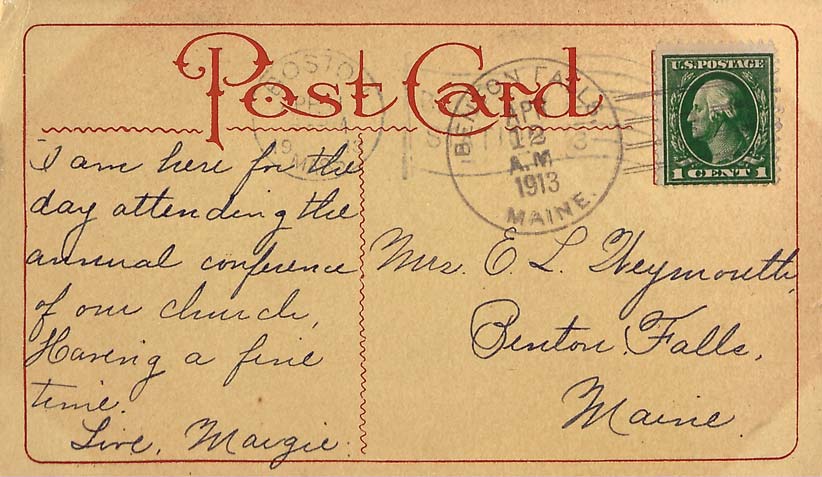 Post Card
BOSTON
APR
MASS
BENTON FALLS
APR
12
A.M
1913
MAINE.
U.S. POSTAGE
1 CENT 1
I am here for the
day attending the
annual conference
of our church,
Having a fine
time.
Love, Margie.
Mrs. E. L. Weymouth,
Benton Falls,
Maine.